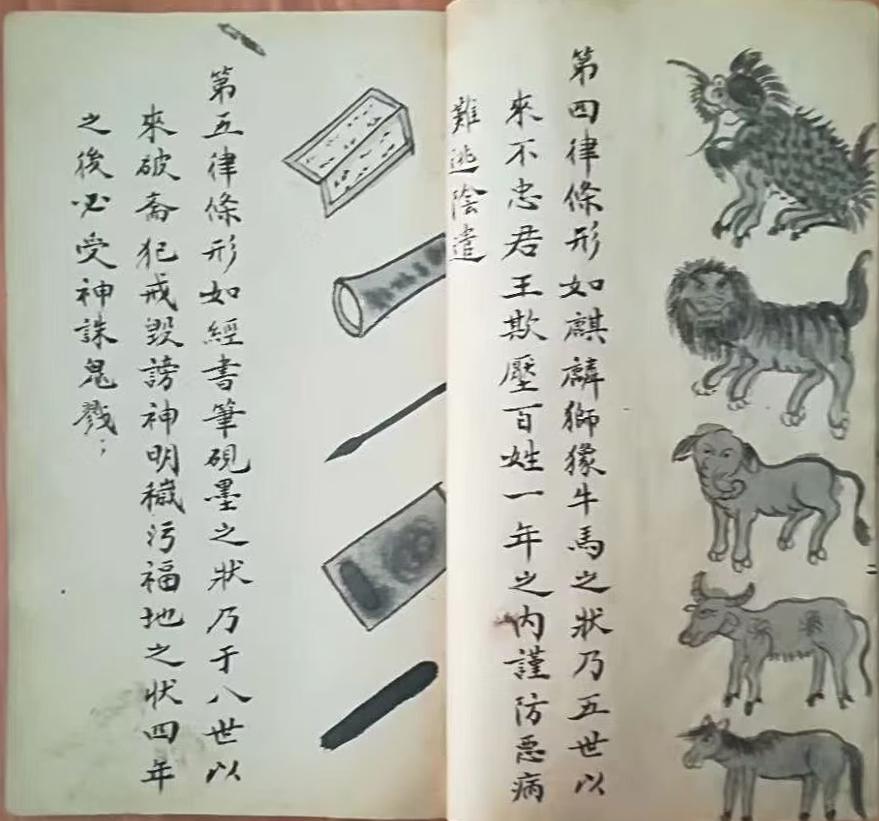 第四律條形如麒麟獅㺔牛馬之狀乃五世以
來不忠君王欺壓百姓一年之內謹防惡病
難逃陰遣
第五律條形如經書筆硯墨之狀乃于八世以
來破斋犯戒毀謗神明穢污福地之狀四年
之後必受神誅鬼戮；